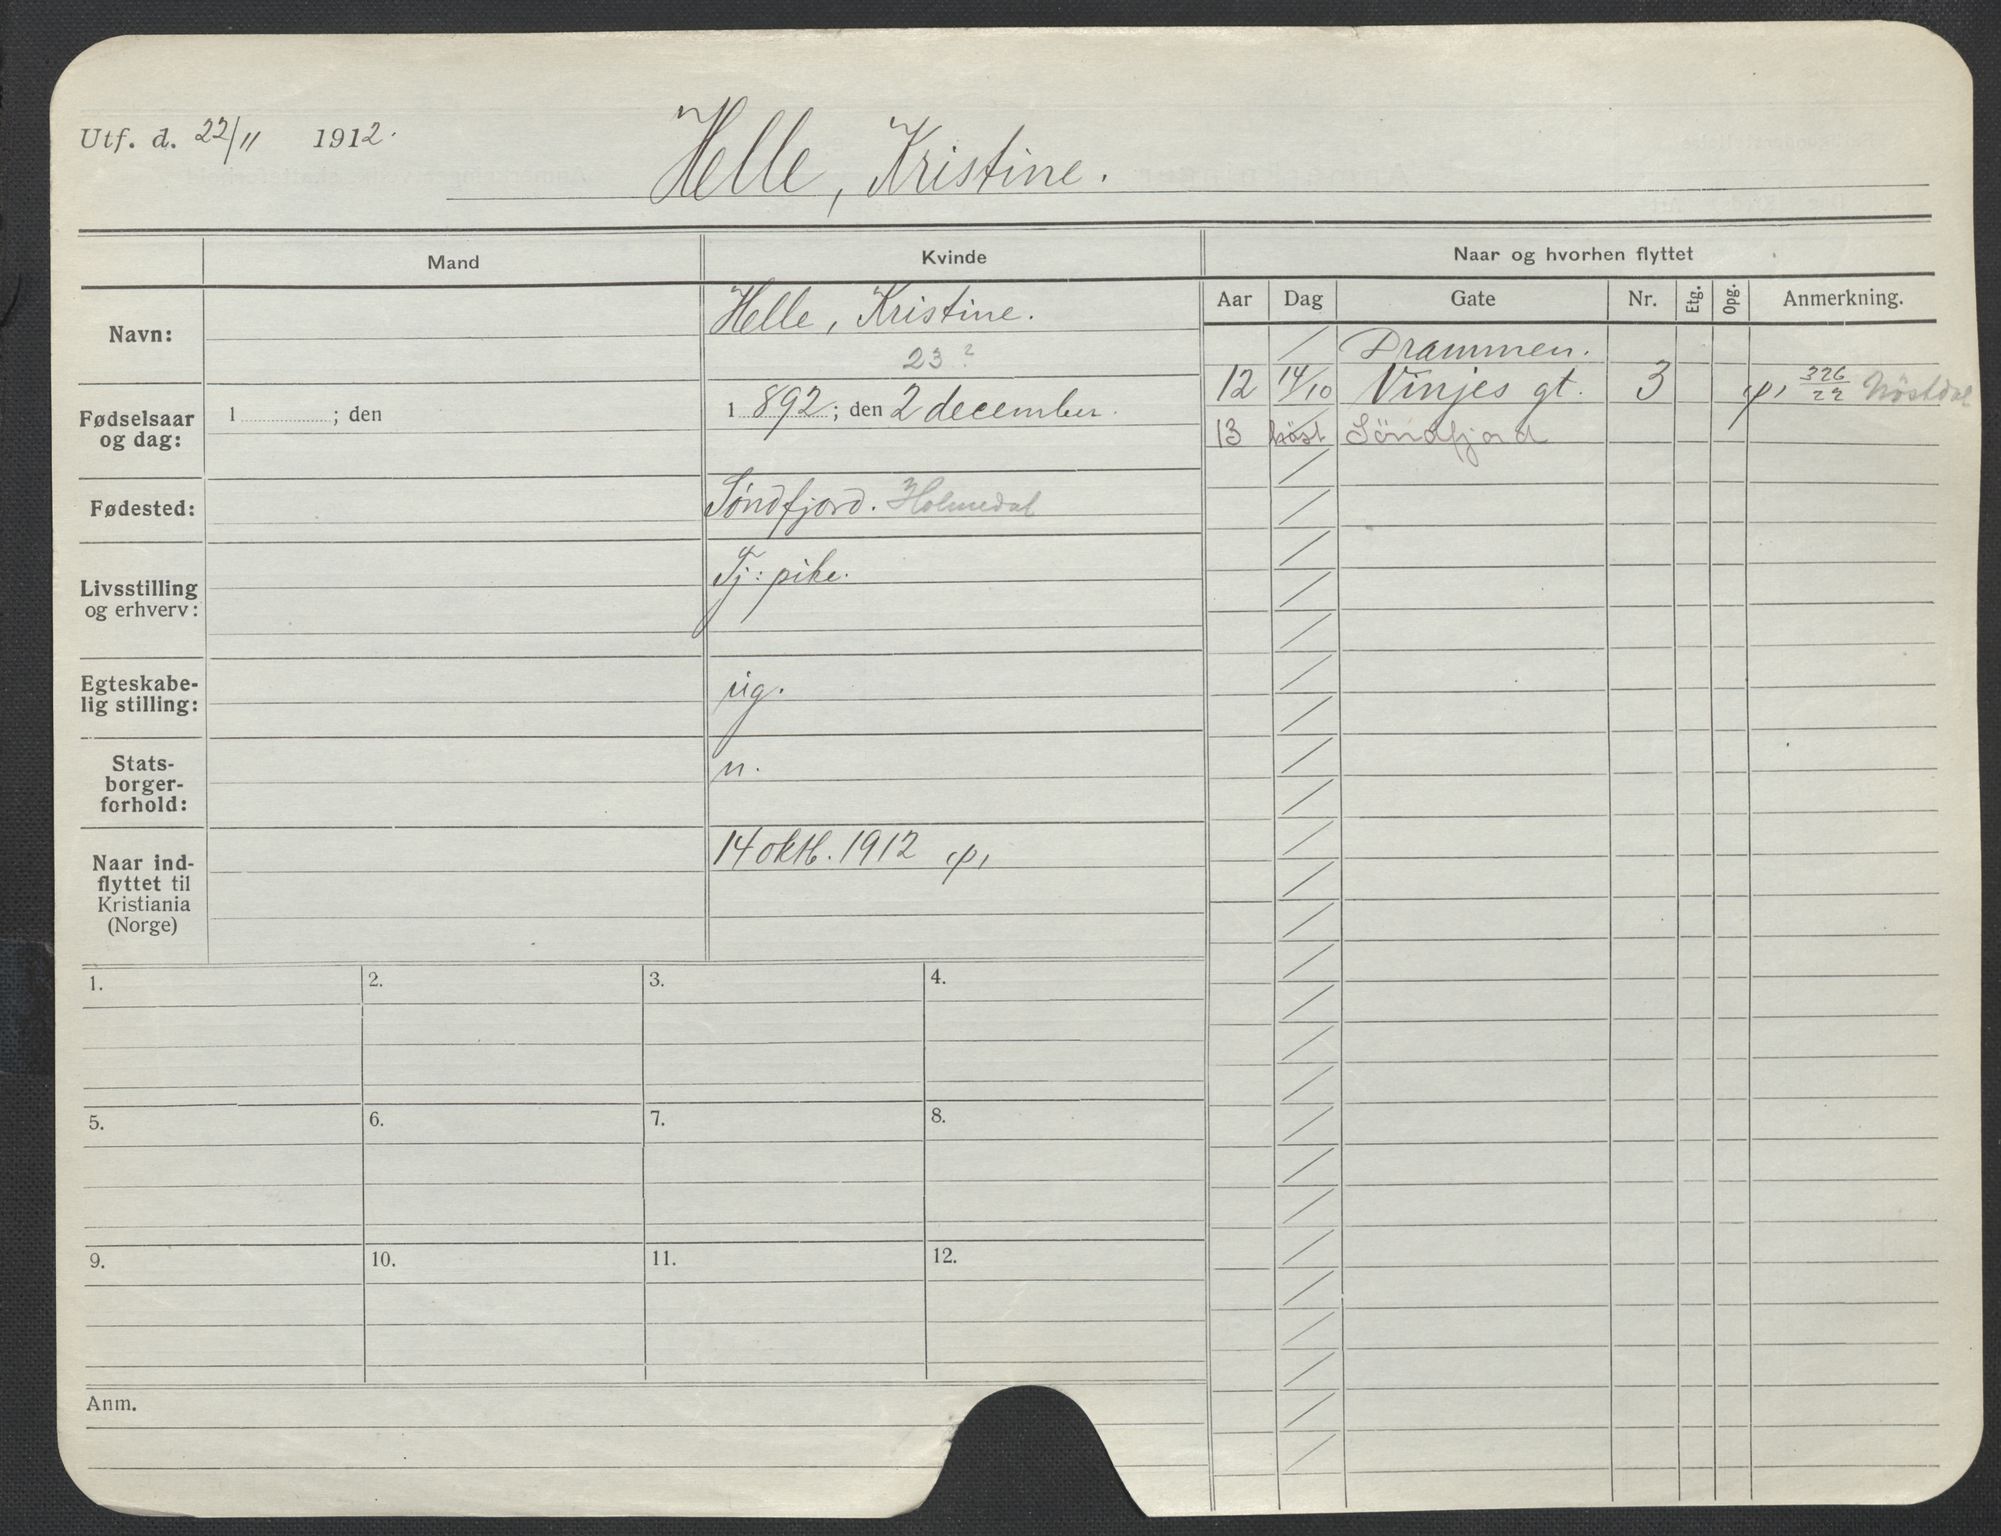 Utf. d. 22/11 1912.
Helle, Kristine.
Mand
Kvinde
Naar og hvorhen flyttet
Aar Dag Gate Nr. Etg. Opg. Anmerkning.
Navn:
Helle, Kristine.
23?
Fødselsaar
og dag:
1 ; den
1 892 ; den 2 december.
Fødested:
Søndfjord. Holmedal
Livsstilling
og erhverv:
Tj: pike.
Egteskabe-
lig stilling:
ug.
Stats-
borger-
forhold:
n.
Naar ind-
flyttet til
Kristiania
(Norge)
14 oktb. 1912
Drammen.
12 14/10 Vinjes gt. 3 326/22
13 høst Søndfjord
1. 2. 3. 4.
5. 6. 7. 8.
9. 10. 11. 12.
Anm.